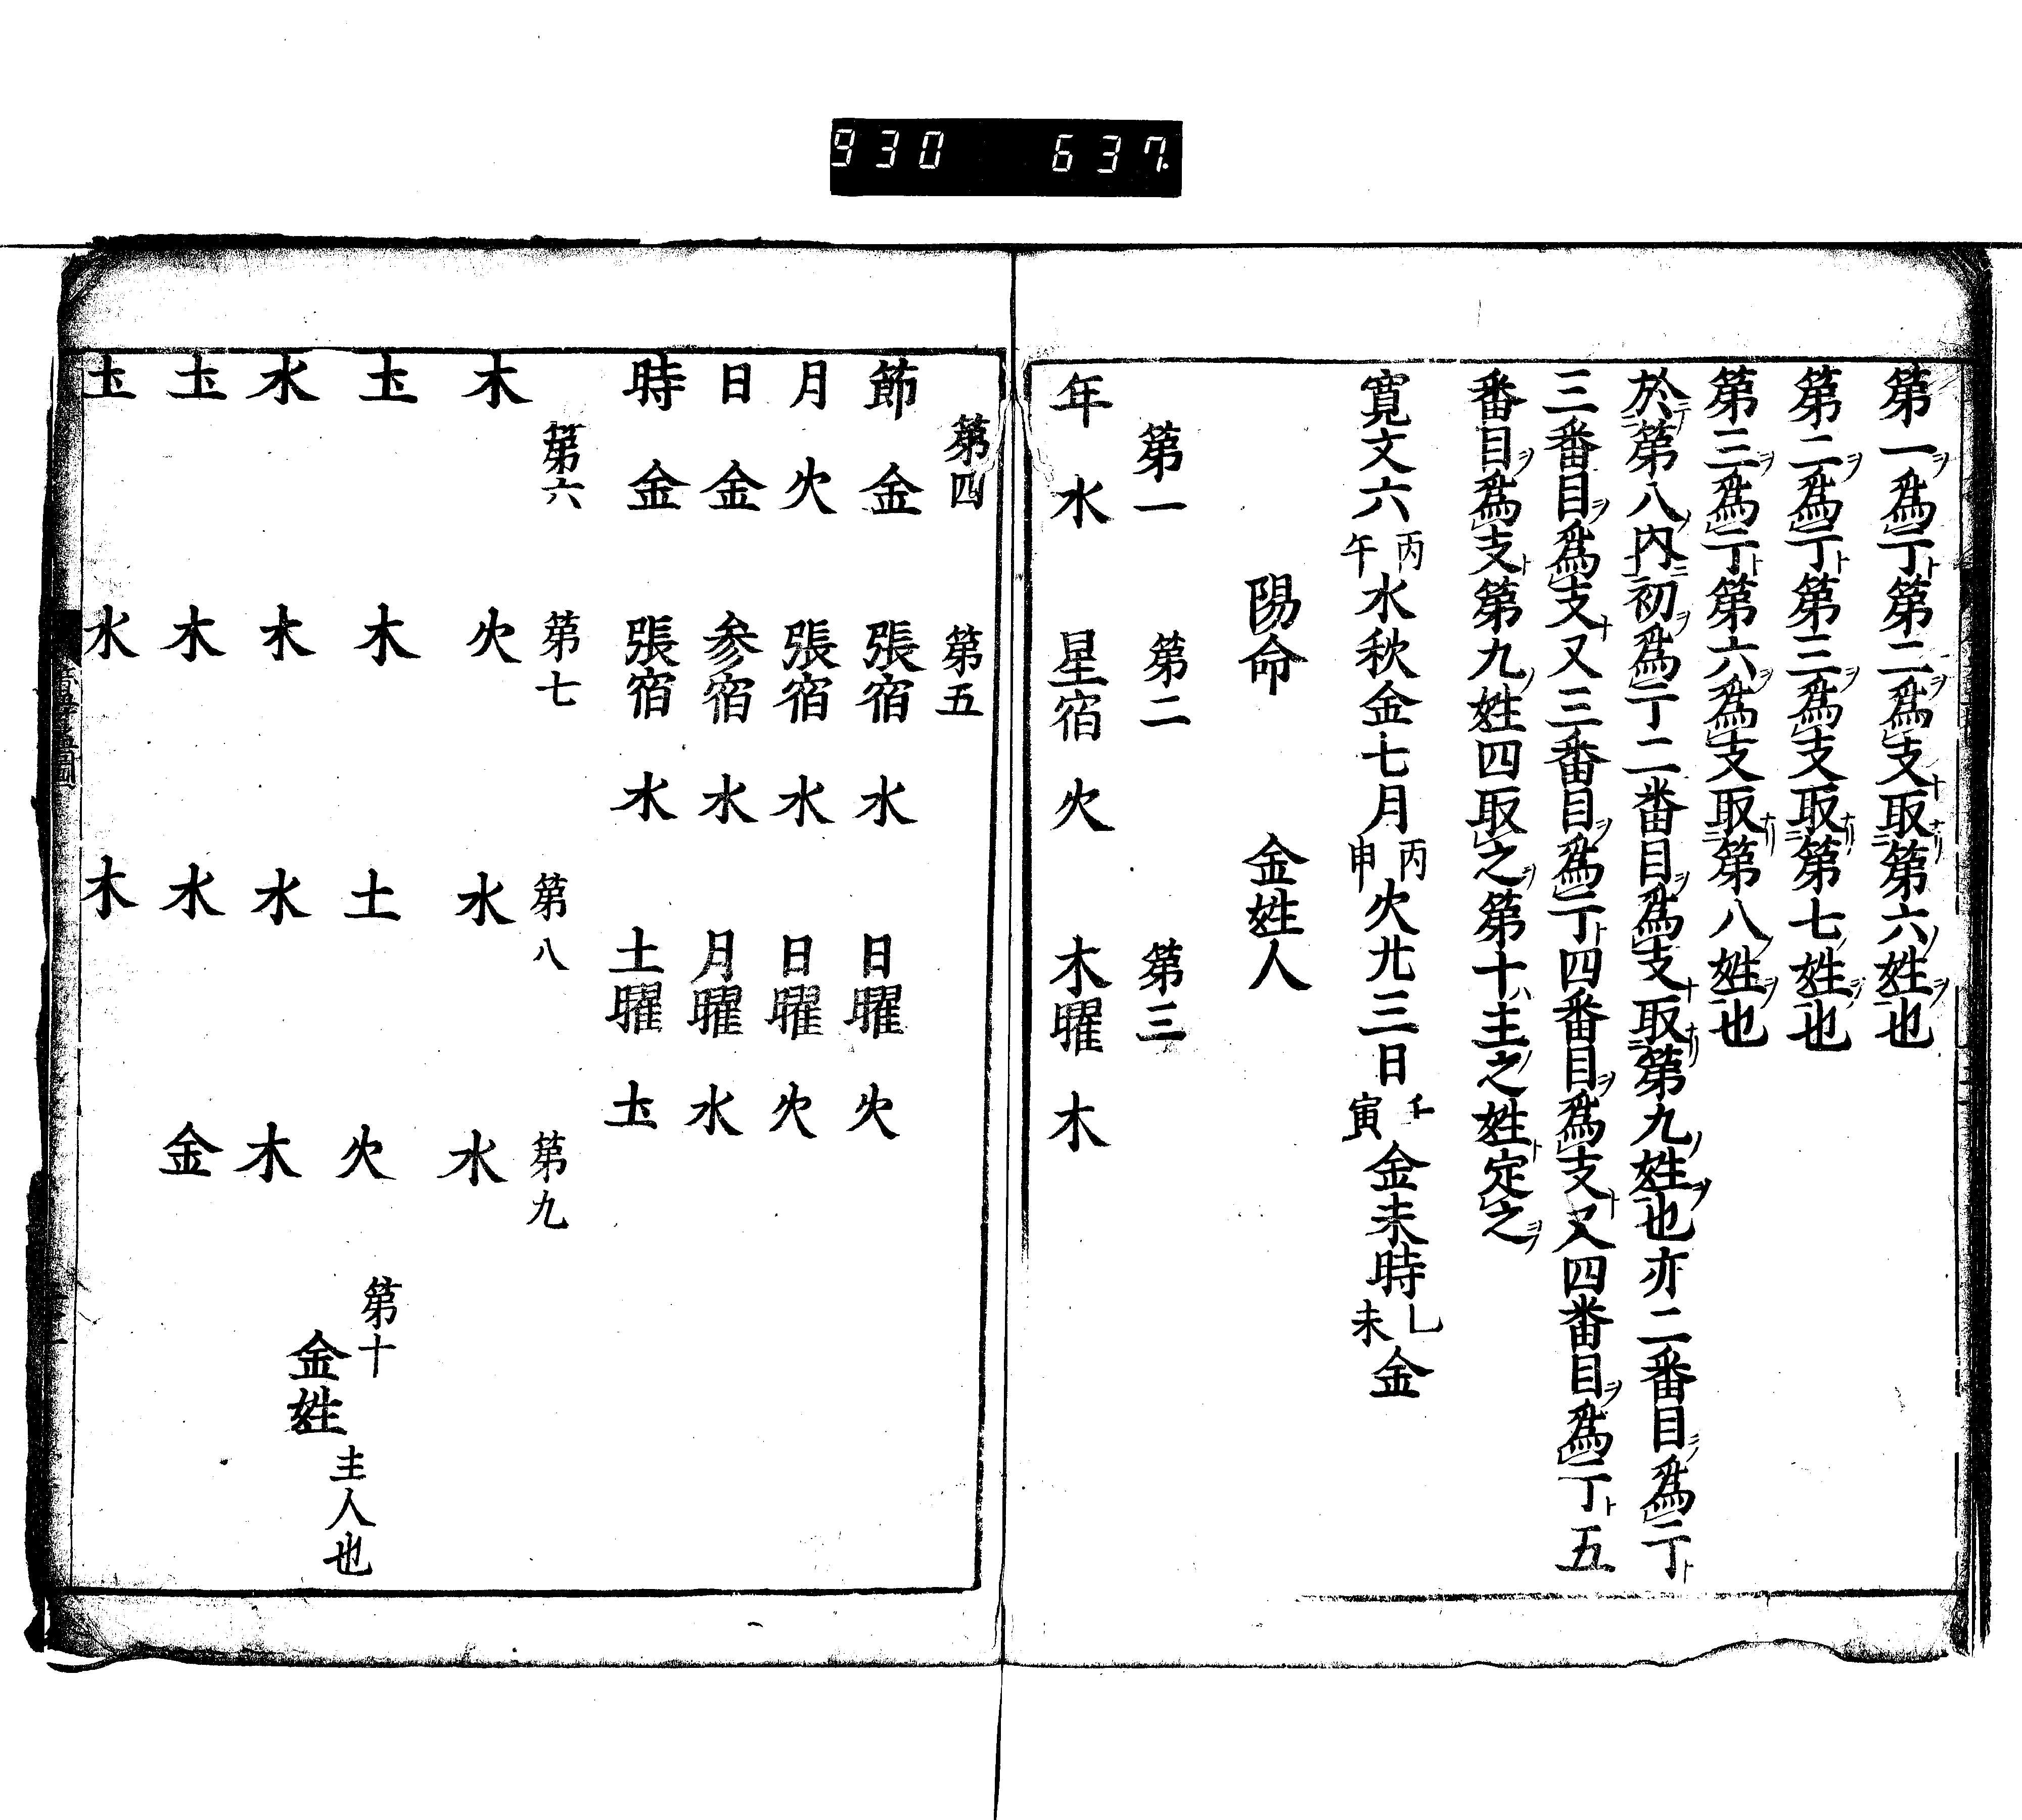 930 637
第一爲干第二爲支取第六姓也
第二爲干第三爲支取第七姓也
第三爲干第六爲支取第八姓也
於第八内初爲干二番目爲支取第九姓也亦二番目爲干
三番目爲支又三番目爲干四番目爲支又四番目爲干五
番目爲支第九姓四取之第十主之姓定之
寛文六丙午水秋金七月丙申火廿三日壬寅金未時乙未金
陽命 金姓人
第一 第二 第三
年 水 星宿 火 木曜 木
第四 第五
節 金 張宿 水 日曜 火
月 火 張宿 水 日曜 火
日 金 参宿 水 月曜 水
時 金 張宿 水 土曜 圡
第六 第七 第八 第九
木 火 水 水
圡 木 土 火 第十
水 木 水 木 金姓 主人也
圡 木 水 金
圡 水 木